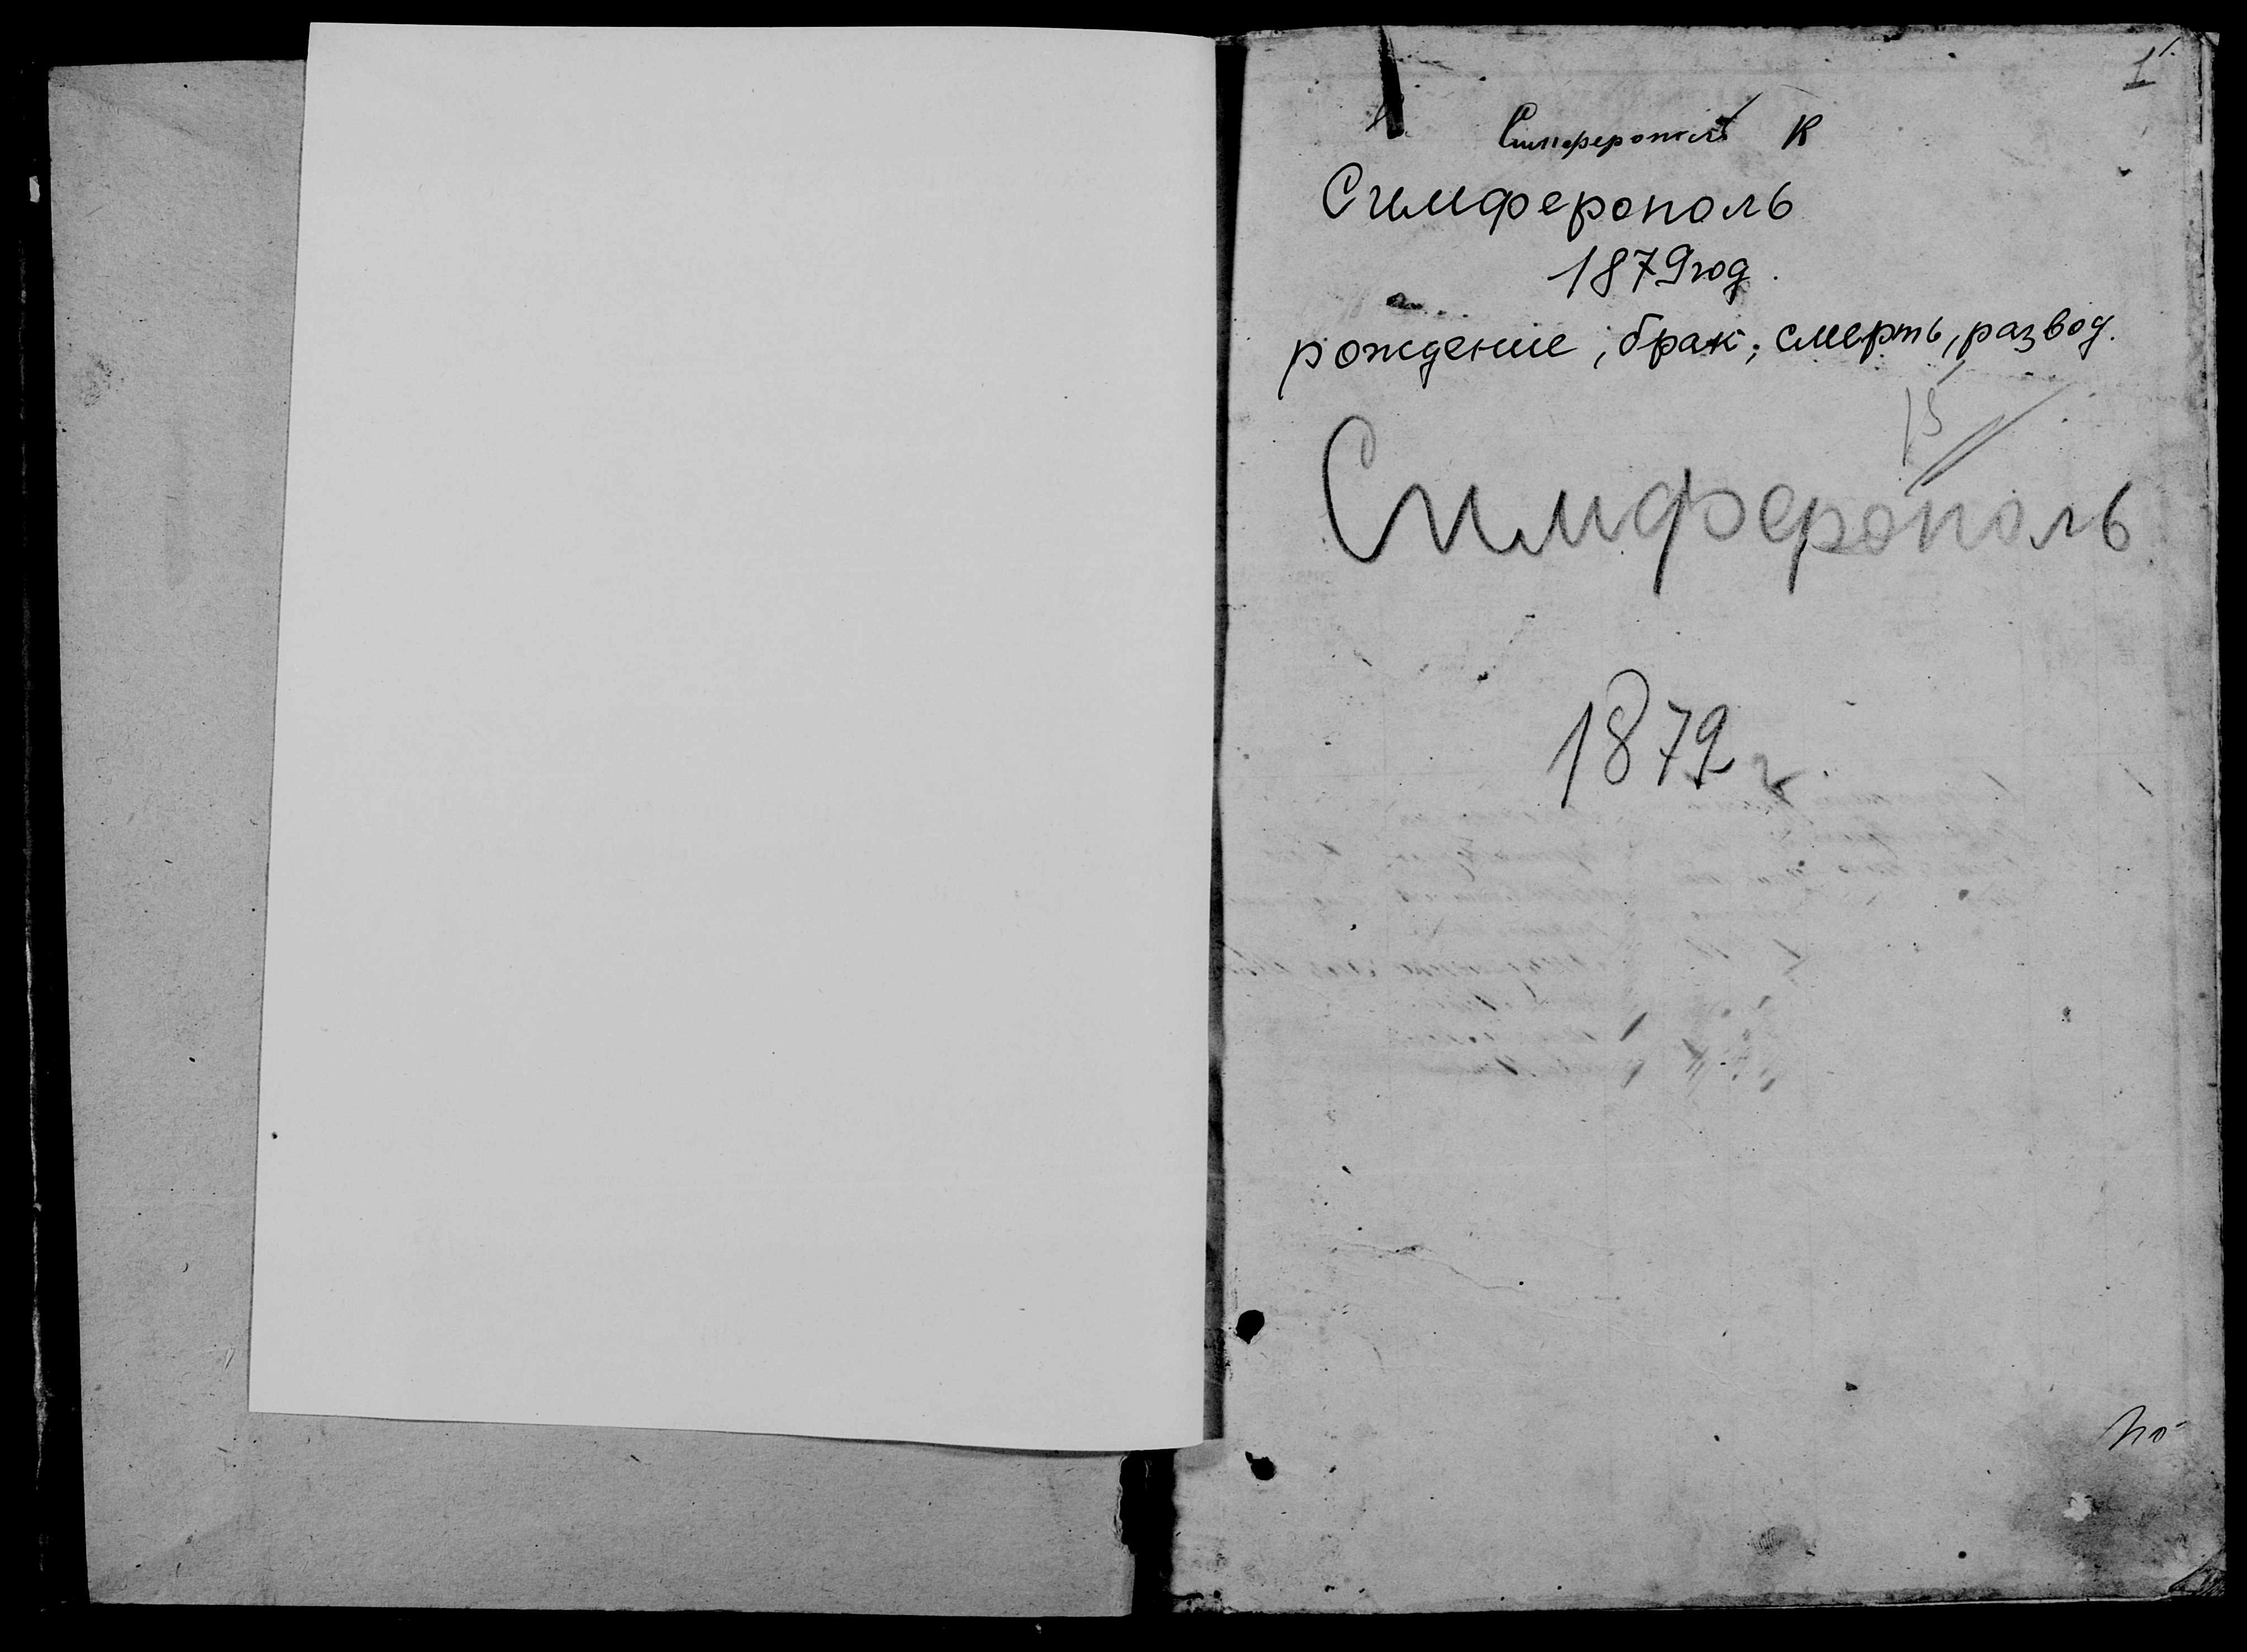 1
Симферополь К
Симферополь
1879 год.
рождение, брак, смерть, развод.
Симферополь
1879 г.